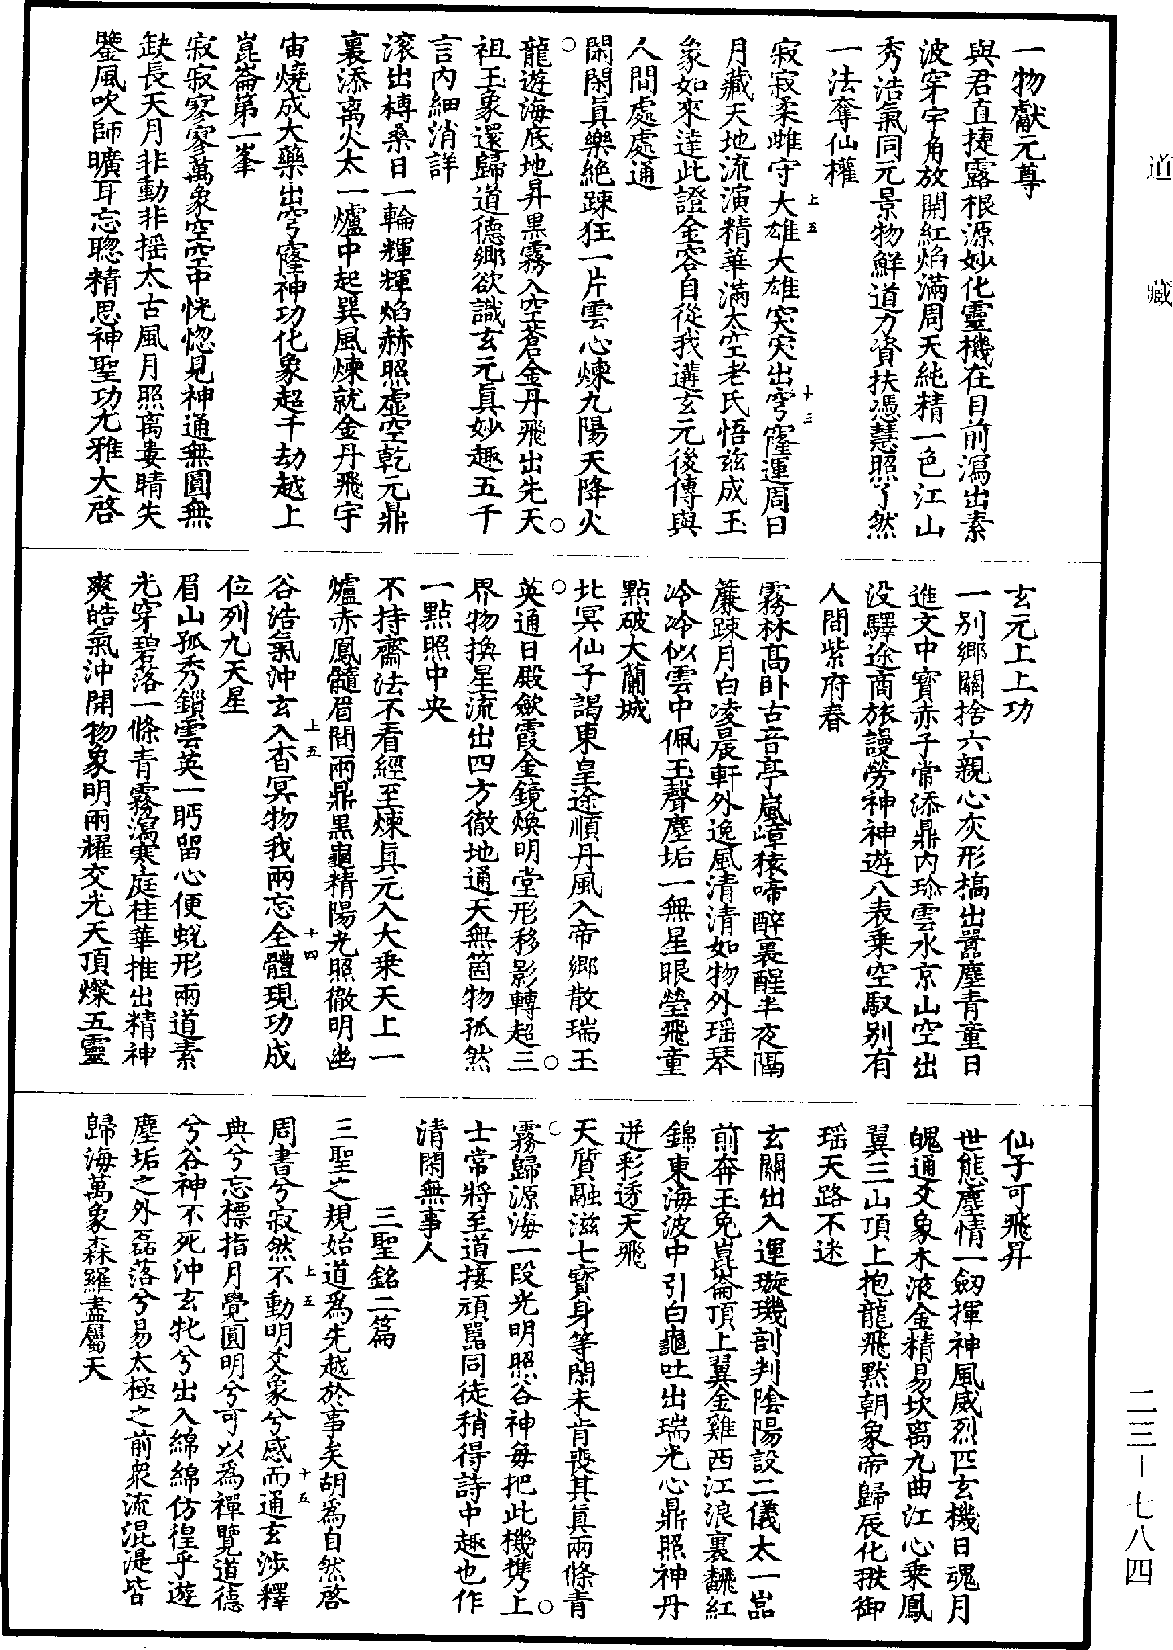 道藏
一物獻元尊
與君直捷露根源妙化靈機在目前瀉出素
波穿宇角放開紅焰滿周天純精一色江山
秀浩氣同元景物鮮道力資扶憑慧照了然
一法奪仙權
寂寂柔雌守大雄大雄突突出穹窿運周日
月藏天地流演精華滿太空老氏悟茲成玉
象如來達此證金容自從我遘玄元後傳與
人間處處通
閑閑眞樂絶踈狂一片雲心煉九陽天降火
龍遊海底地昇黑霧入空蒼金丹飛出先天
祖玉象還歸道德鄉欲識玄元眞妙趣五千
言內細消詳
滚出槫桑日一輪輝輝焰赫照虛空乾元鼎
裏添离火太一爐中起巽風煉就金丹飛宇
宙燒成大藥出穹窿神功化象超千劫越上
崑崙第一峯
寂寂寥寥萬象空空中恍惚見神通無圓無
缺長天月非動非摇太古風月照离婁睛失
鑒風吹師曠耳忘聦精思神聖功尤雅大啓
玄元上上功
一别鄉關捨六親心灰形槁出囂塵青童日
進文中寳赤子常添鼎內珍雲水京山空出
没驛途商旅謾勞神神遊八表乗空馭别有
人間紫府春
霧林高卧古音亭嵐嶂猿啼醉裏醒半夜隔
簾踈月白凌晨軒外逸風清清如物外瑶琴
冷冷似雲中佩玉聲塵垢一無星眼瑩飛童
點破大蘭城
北冥仙子謁東皇途順丹風入帝鄉散瑞玉
英通日殿歛霞金鏡煥明堂形移影轉超三
界物換星流出四方徹地通天無箇物孤然
一點照中央
不持齋法不看經至煉眞元入大乗天上一
爐赤鳳髓眉間兩鼎黑龜精陽光照徹明幽
谷浩氣沖玄入杳冥物我兩忘全體現功成
位列九天星
眉山孤秀鎖雲英一眄留心便蛻形兩道素
光穿碧落一條青霧瀉寒庭桂華推出精神
爽皓氣沖開物象明兩耀交光天頂燦五靈
仙子可飛昇
世態塵情一劒揮神風威烈匹玄機日魂月
魄通爻象木液金精易坎离九曲江心乗鳳
翼三山頂上抱龍飛黙朝象帝歸辰化撥御
瑶天路不迷
玄關出入運璇璣剖判陰陽設二儀太一嵓
前奔玉兔崑崙頂上翼金雞西江浪裏飜紅
錦東海波中引白龜吐出瑞光心鼎照神丹
迸彩透天飛
天質融滋七寳身等閑未肯喪其眞兩條青
霧歸源海一段光明照谷神每把此機㩦上
士常將至道接頑嚚同徒稍得詩中趣也作
清閑無事人
三聖銘二篇
三聖之規始道爲先越於事矣胡爲自然啓
周書兮寂然不動明爻象兮感而通玄涉釋
典兮忘標指月覺圓明兮可以爲禪覽道德
兮谷神不死沖玄牝兮出入綿綿仿徨乎遊
塵垢之外磊落兮易太極之前衆流混湜皆
歸海萬象森羅盡屬天
上五
十三
上五
十四
上五
十五
二三—七八四